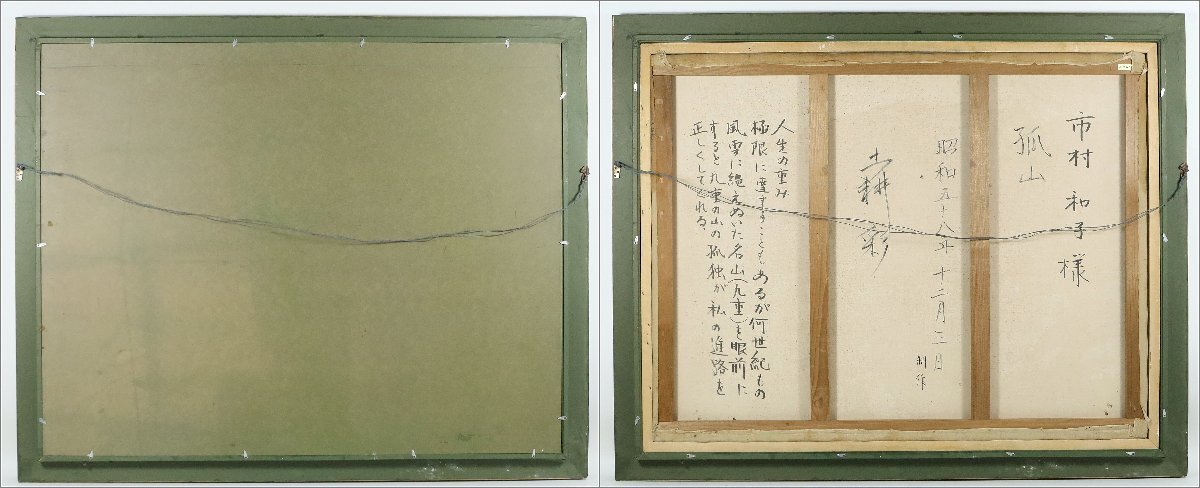 市村 和子様
孤山
昭和五十八年十二月三日
制作
耕彩
人生の重み
極限に達することもあるが何世紀もの
風雪に絶えぬいた名山(九重)を眼前に
すると九重の山の孤独が私の進路を
正しくしてくれる